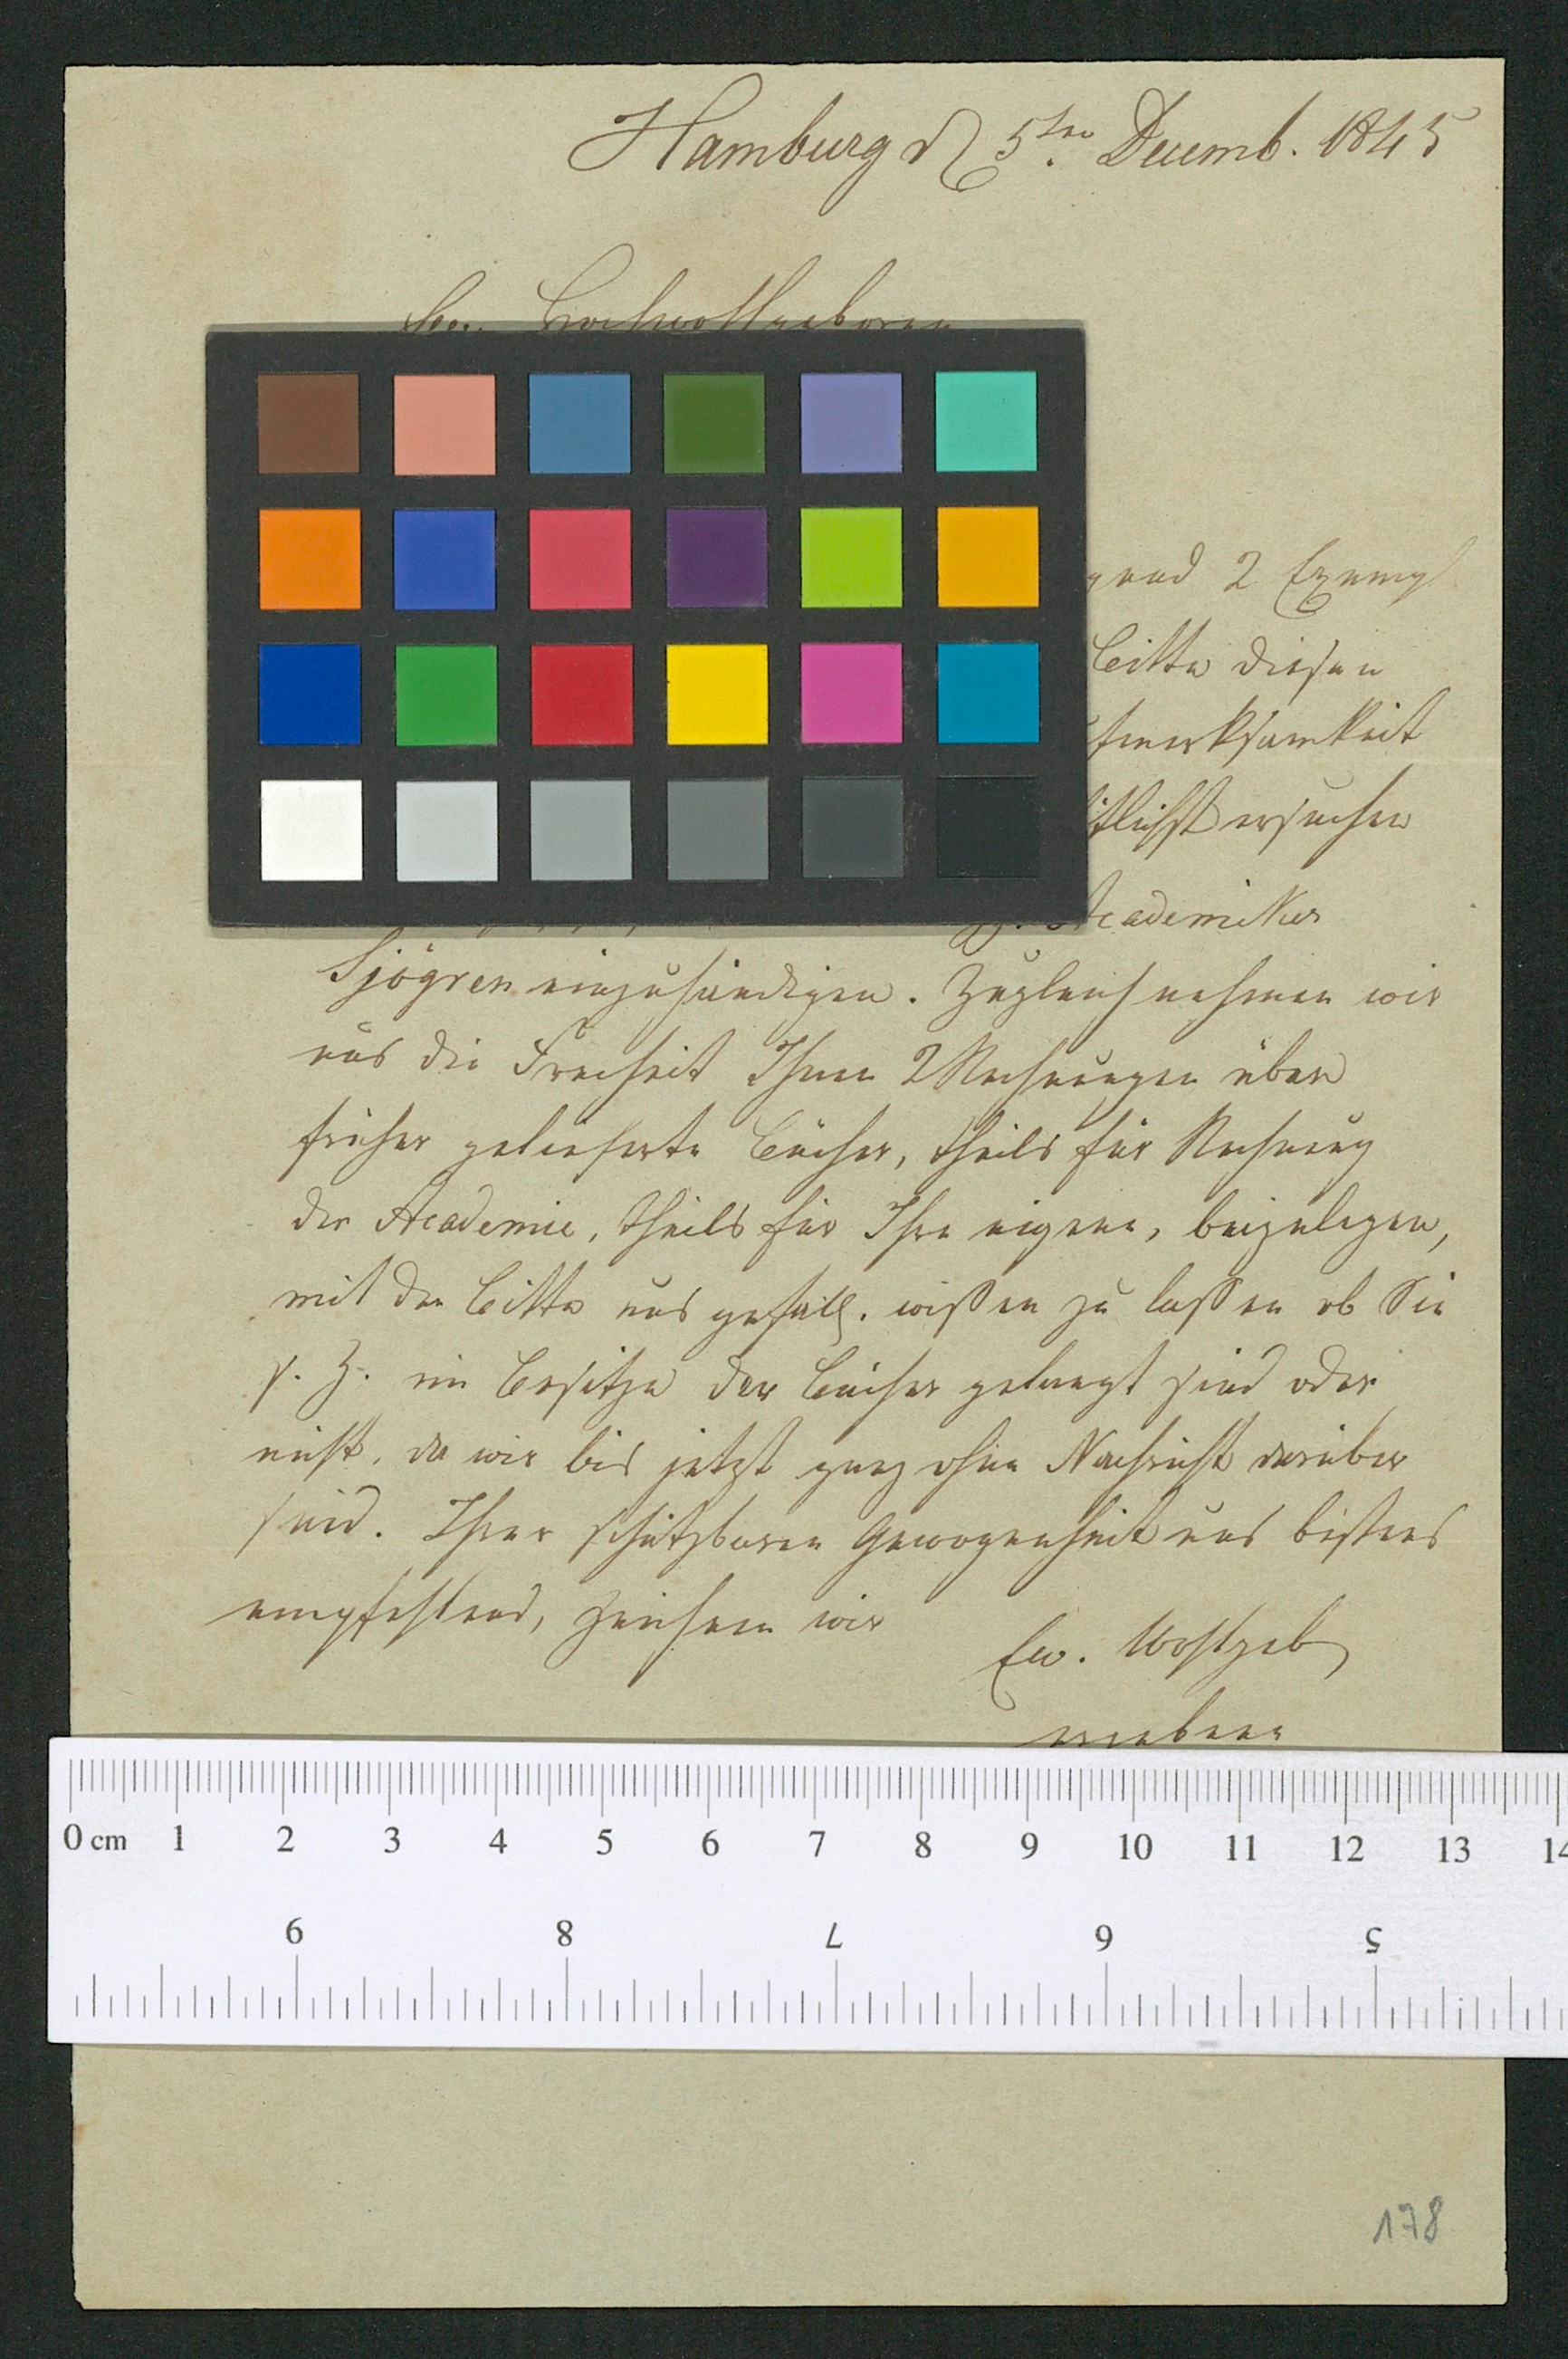 Hamburg d 5ten Decemb. 1845
Sr. Hochwohlgeboren
2 Exempl
Bitte diesen
fmerksamkeit
ersuchen
Academiker
Sjögren einzuhändigen. Zugleich nehmen wir
uns die Freiheit Ihnen 2 Rechnungen über
früher gelieferte Bücher, theils für Rechnung
der Academie, theils für Ihre eigene, beizulegen,
mit der Bitte uns gefäll. wissen zu lassen ob Sie
s. Z. im Besitze der Bücher gelangt sind oder
nicht, da wir bis jetzt ganz ohne Nachricht darüber
sind. Ihrer schätzbaren Gewogenheit uns bestens
empfehlend, zeichnen wir
Ew. Wohlgeb
ergebene
0 cm 1 2 3 4 5 6 7 8 9 10 11 12 13 14
9 8 7 6 5
178